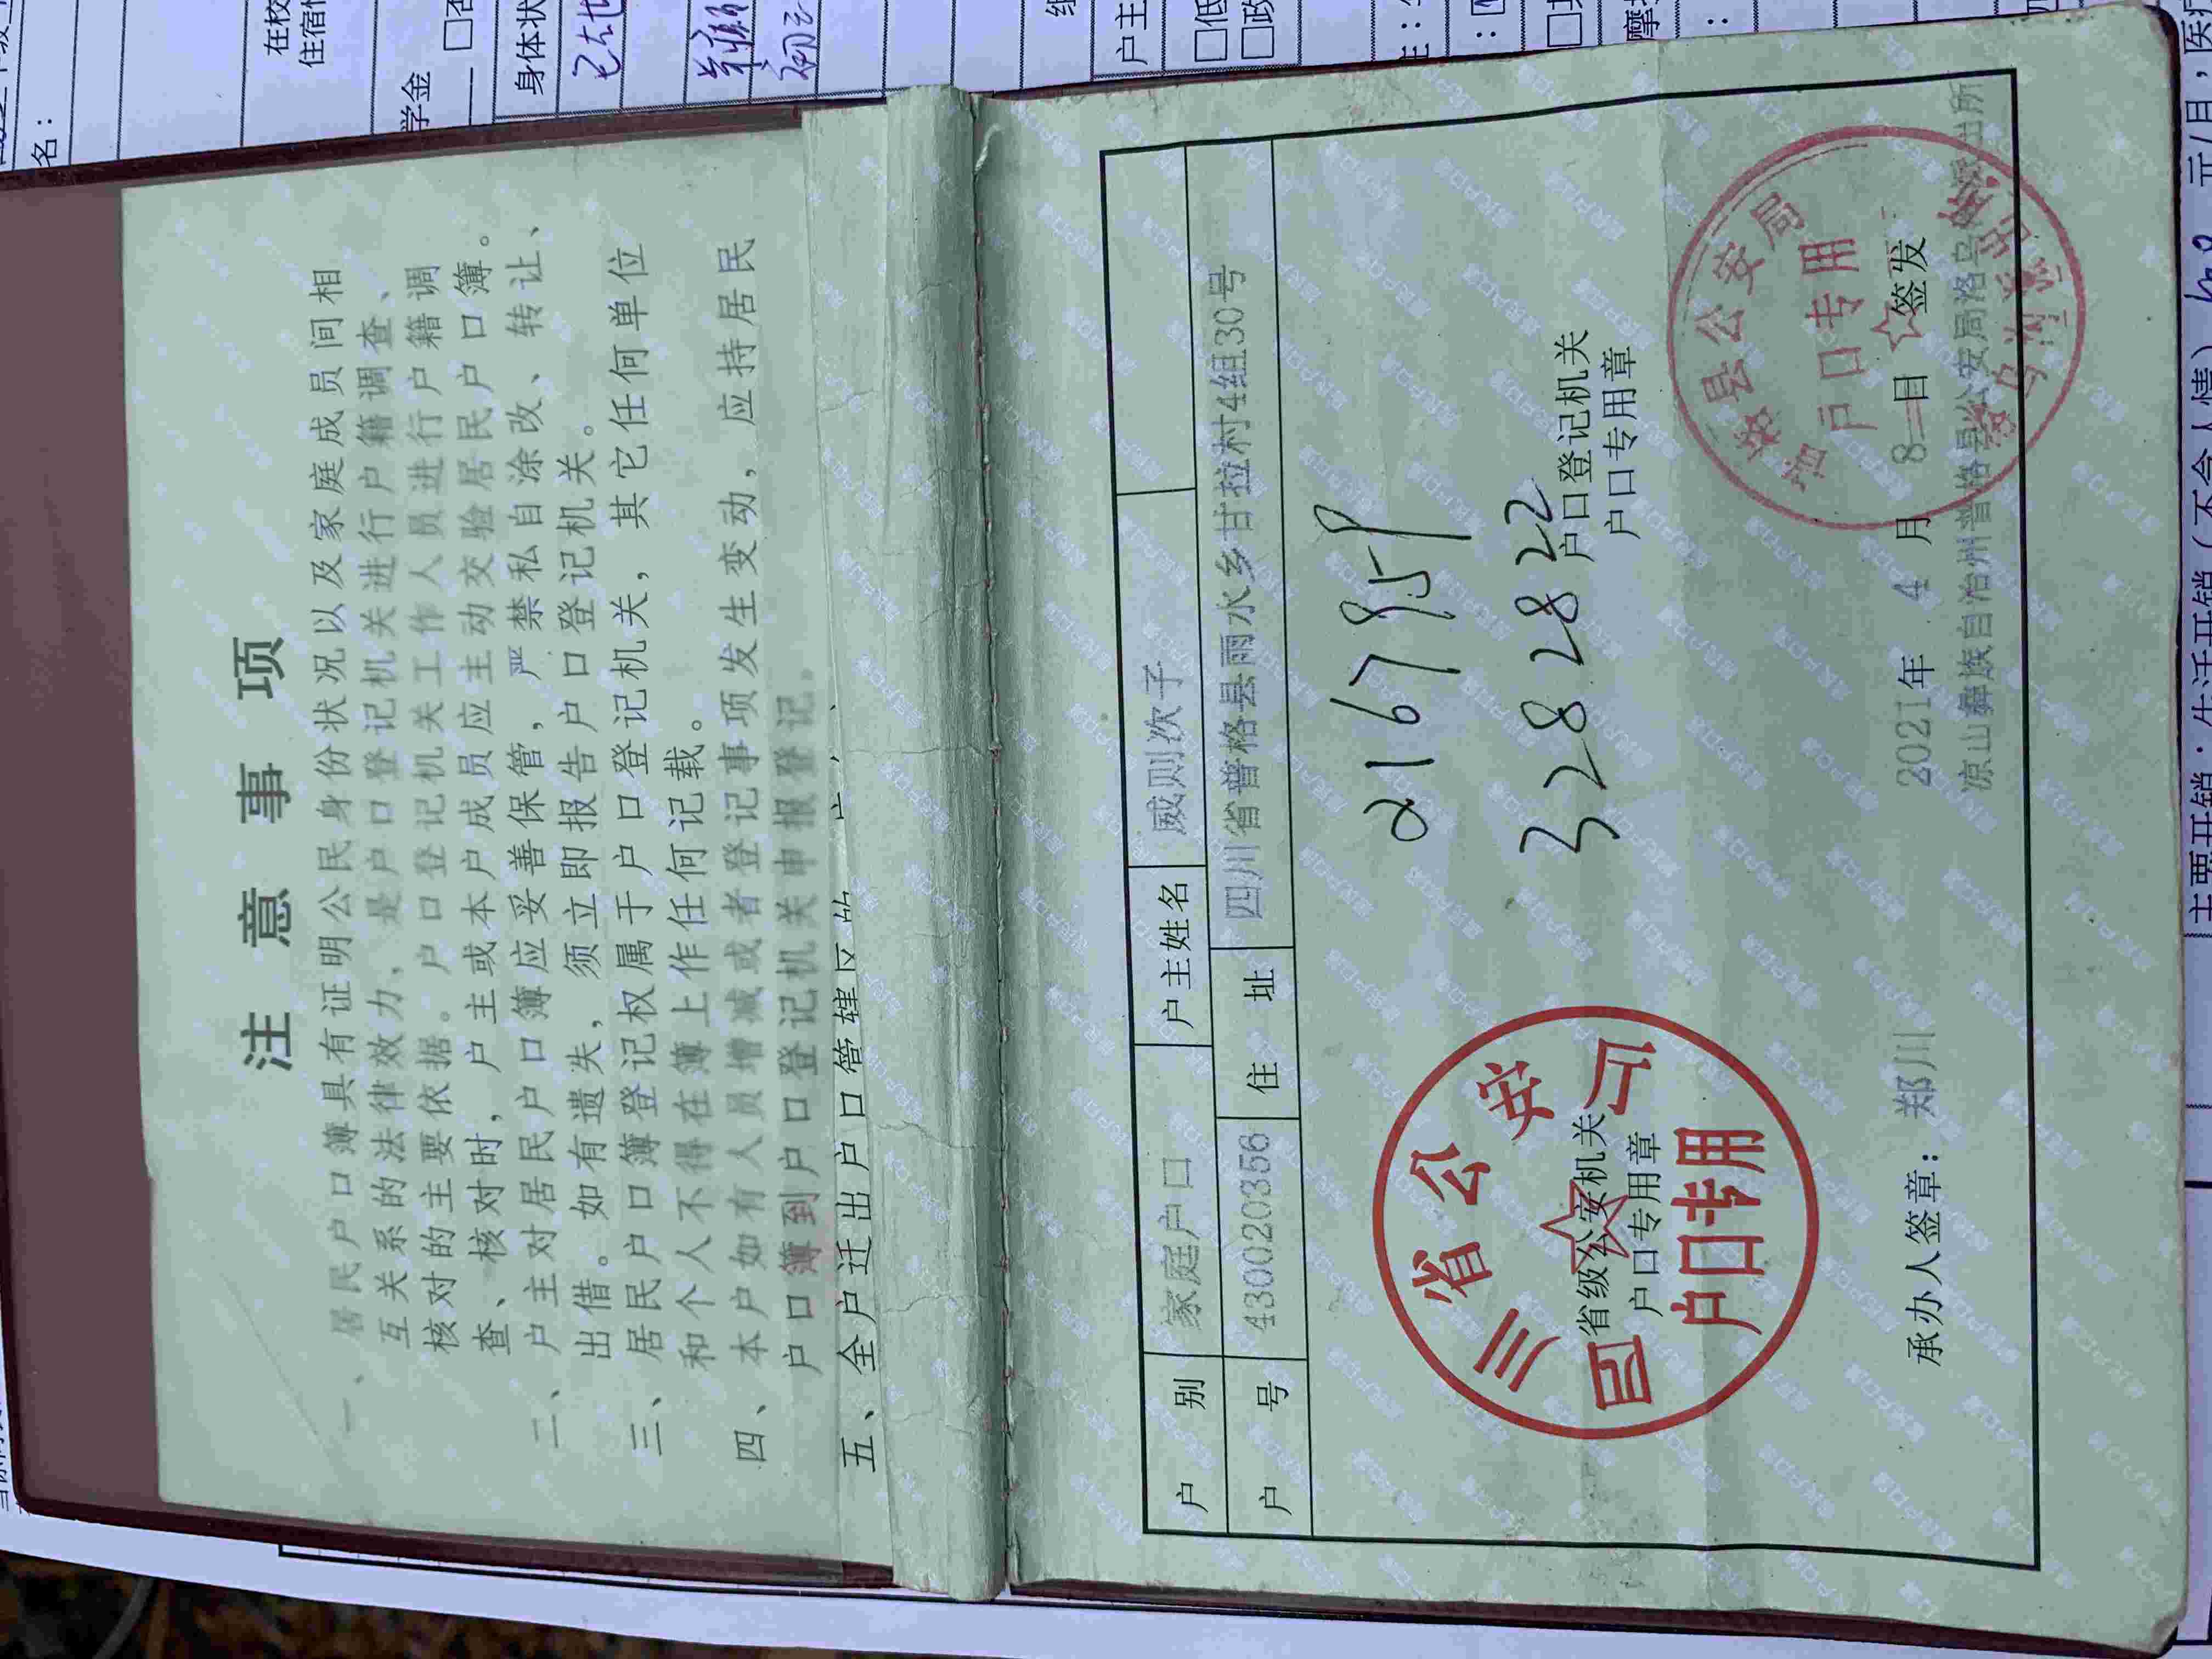 注意事项
一、居民户口簿具有证明公民身份状况以及家庭成员间相
互关系的法律效力、是户口登记机关进行户籍调查、
核对的主要依据。户口登记机关工作人员进行户籍调
查、核对时，户主或本户成员应主动交验居民户口簿。
二、户主对居民户口簿应妥善保管，严禁私自涂改、转让、
出借。如有遗失，须立即报告户口登记机关。
三、居民户口簿登记权属于户口登记机关，其它任何单位
和个人不得在簿上作任何记载。
四、本户如有人员增减或者登记事项发生变动，应持居民
户口簿到户口登记机关申报登记。
五、全户迁出户口管辖区的
户别 家庭户口 户主姓名 威则次子
户号 430020356 住址 四川省普格县雨水乡甘拉村4组30号
2167959
3282822
四川省公安厅
户口专用
省级公安机关
户口专用章
户口登记机关
户口专用章
县公安局
户口专用
承办人签章：郑川
2021年 4 月 8 日 签发
凉山彝族自治州普格县公安局洛乌派出所
在校
住宿情
名：
学金
身体状
户主
□低
□政
主要开销：生活开销（不含人情）
元/月，医疗